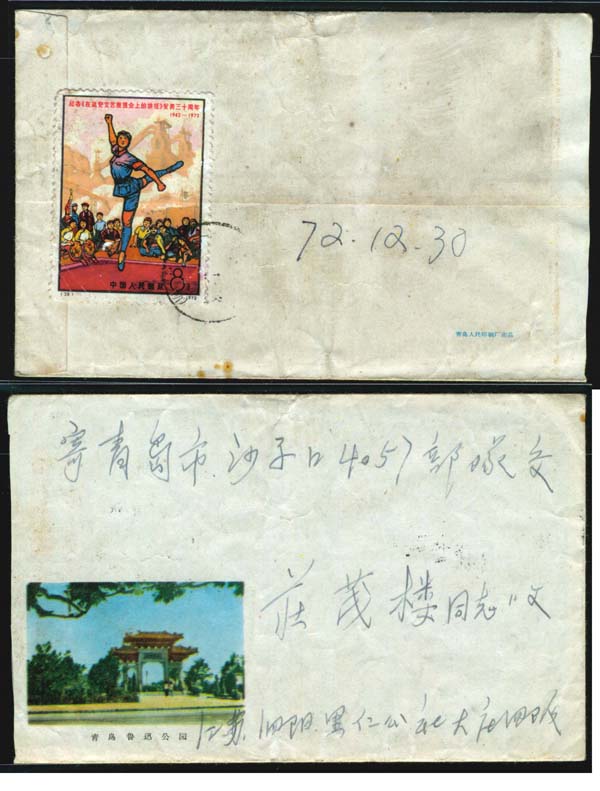 纪念《在延安文艺座谈会上的讲话》发表三十周年
1942—1972
中国人民邮政
8
1972
72.12.30
青岛人民印刷厂出品
寄青岛市沙子口4057部队交
莊茂楼同志收
青岛鲁迅公园
江苏泗阳里仁公社大庄四队